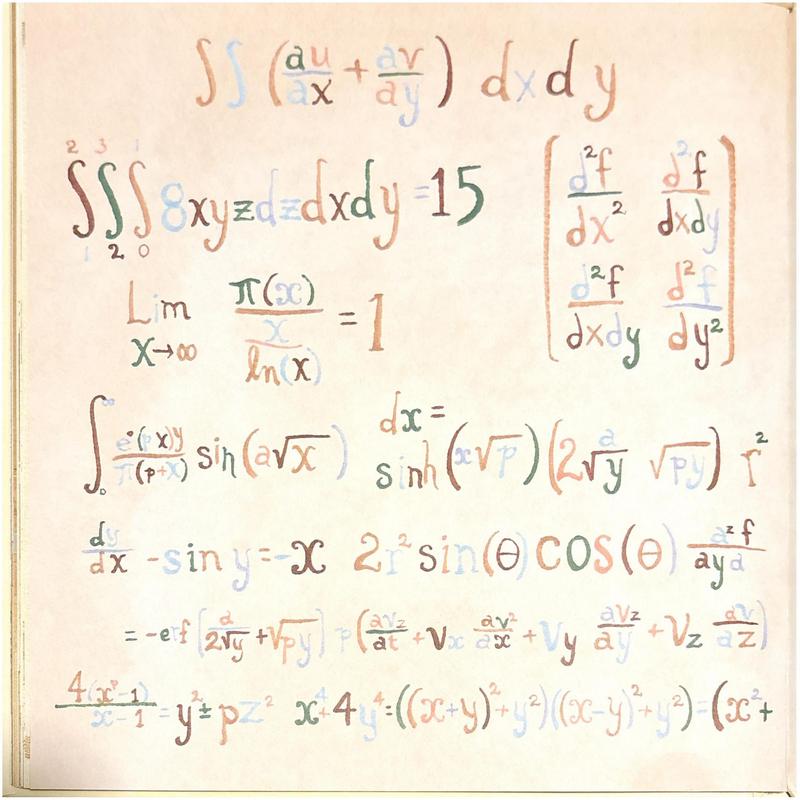 ∫∫ (au/ax + av/ay) dxdy
∫₁²∫₂³∫₀¹ 8xyzdzdxdy = 15
[d²f/dx² d²f/dxdy
d²f/dxdy d²f/dy²]
Lim x→∞ π(x)/(x/ln(x)) = 1
dx =
∫₀^∞ e^(px)y/π(p+x) sin(a√x) sinh(x√p)(2√y a √py) r²
dy/dx - sin y = -x 2r² sin(θ) cos(θ) a²f/aya
= -erf [a/2√y + √py] p(avz/at + Vx av²/ax + Vy avz/ay + Vz av/az)
4(x²-1)/x-1 = y² ± pz² x⁴+4y⁴=((x+y)²+y²)((x-y)²+y²)=(x²+